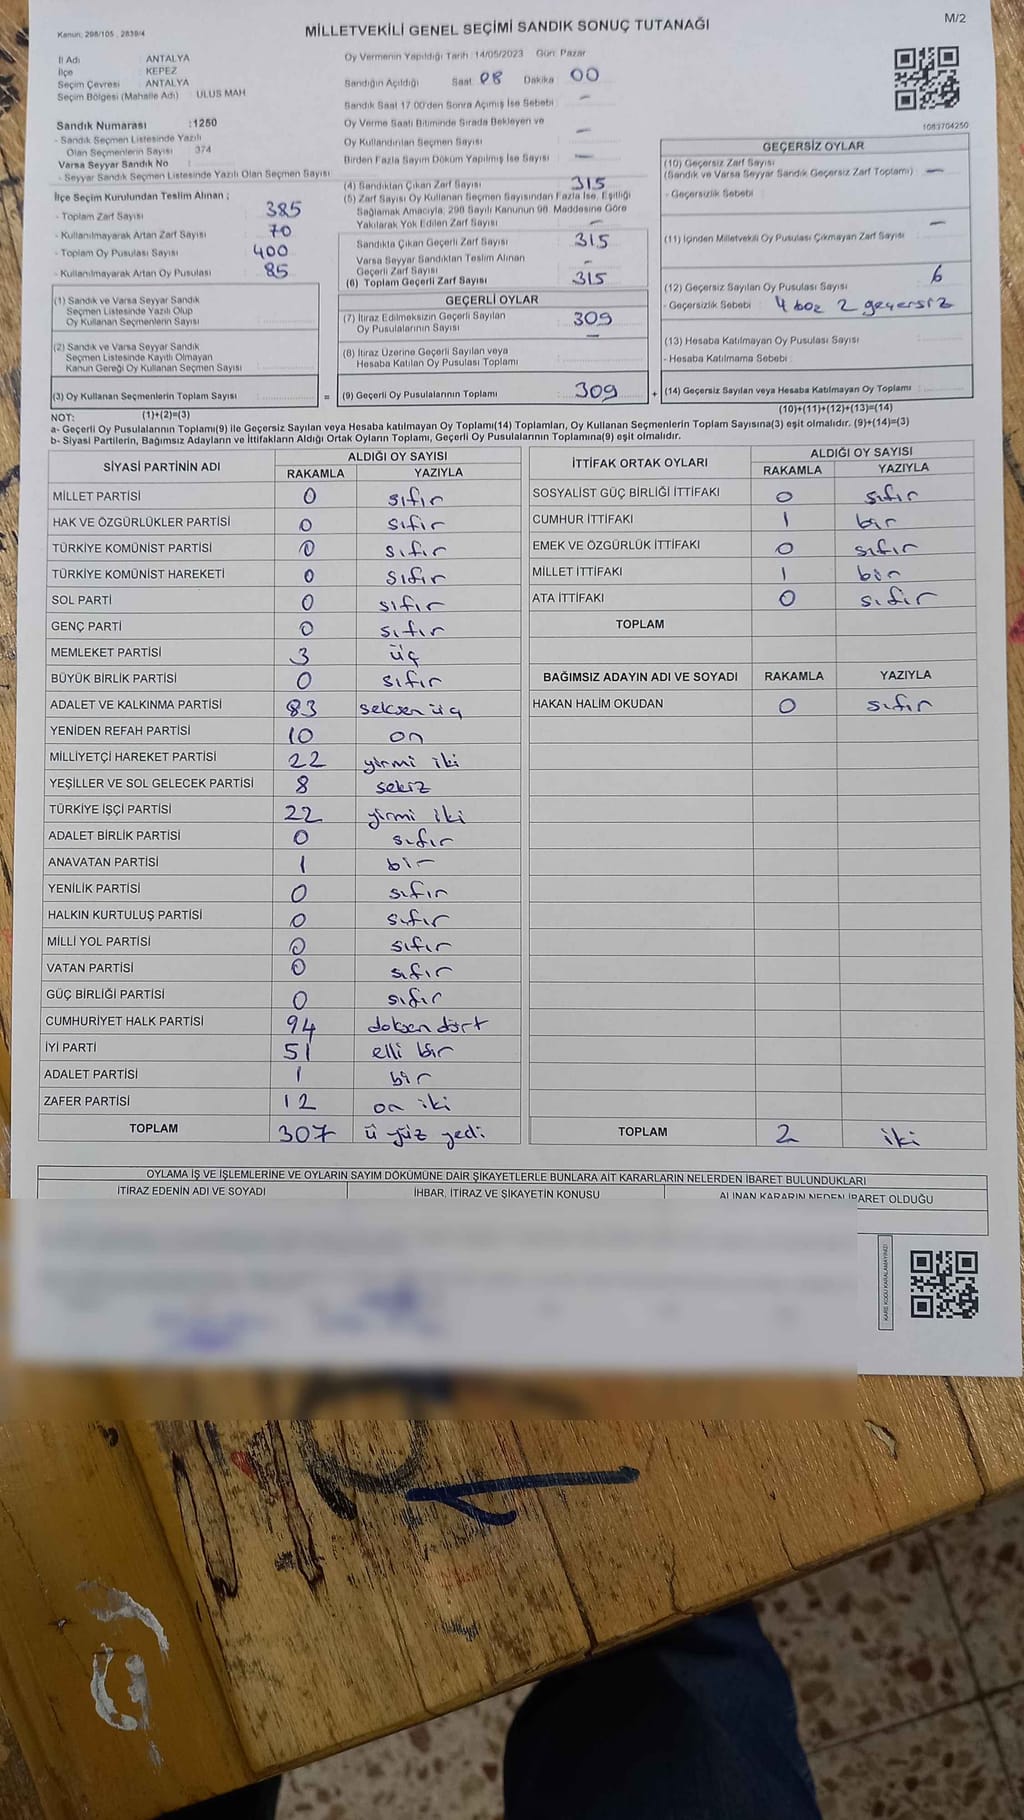 M/2
Kanun: 298/105 , 2839/4
MİLLETVEKİLİ GENEL SEÇİMİ SANDIK SONUÇ TUTANAĞI
İl Adı : ANTALYA
İlçe : KEPEZ
Seçim Çevresi : ANTALYA
Seçim Bölgesi (Mahalle Adı) : ULUS MAH.
Sandık Numarası : 1250
- Sandık Seçmen Listesinde Yazılı
Olan Seçmenlerin Sayısı : 374
Varsa Seyyar Sandık No :
- Seyyar Sandık Seçmen Listesinde Yazılı Olan Seçmen Sayısı
İlçe Seçim Kurulundan Teslim Alınan :
- Toplam Zarf Sayısı 385
- Kullanılmayarak Artan Zarf Sayısı 70
- Toplam Oy Pusulası Sayısı 400
- Kullanılmayarak Artan Oy Pusulası 85
(1) Sandık ve Varsa Seyyar Sandık
Seçmen Listesinde Yazılı Olup
Oy Kullanan Seçmenlerin Sayısı
(2) Sandık ve Varsa Seyyar Sandık
Seçmen Listesinde Kayıtlı Olmayan
Kanun Gereği Oy Kullanan Seçmen Sayısı
(3) Oy Kullanan Seçmenlerin Toplam Sayısı =
Oy Vermenin Yapıldığı Tarih : 14/05/2023 Gün: Pazar
Sandığın Açıldığı Saat 08 Dakika 00
Sandık Saat 17:00'den Sonra Açımış İse Sebebi : —
Oy Verme Saati Bitiminde Sırada Bekleyen ve
Oy Kullandırılan Seçmen Sayısı —
Birden Fazla Sayım Döküm Yapılmış İse Sayısı —
(4) Sandıktan Çıkan Zarf Sayısı 315
(5) Zarf Sayısı Oy Kullanan Seçmen Sayısından Fazla İse, Eşitliği
Sağlamak Amacıyla, 298 Sayılı Kanunun 98. Maddesine Göre
Yakılarak Yok Edilen Zarf Sayısı —
Sandıkta Çıkan Geçerli Zarf Sayısı 315
Varsa Seyyar Sandıktan Teslim Alınan
Geçerli Zarf Sayısı —
(6) Toplam Geçerli Zarf Sayısı 315
GEÇERLİ OYLAR
(7) İtiraz Edilmeksizin Geçerli Sayılan
Oy Pusulalarının Sayısı 309
(8) İtiraz Üzerine Geçerli Sayılan veya
Hesaba Katılan Oy Pusulası Toplamı —
(9) Geçerli Oy Pusulalarının Toplamı 309 +
1083704250
GEÇERSİZ OYLAR
(10) Geçersiz Zarf Sayısı
(Sandık ve Varsa Seyyar Sandık Geçersiz Zarf Toplamı) —
- Geçersizlik Sebebi :
(11) İçinden Milletvekili Oy Pusulası Çıkmayan Zarf Sayısı —
(12) Geçersiz Sayılan Oy Pusulası Sayısı 6
- Geçersizlik Sebebi : 4 boz 2 geçersiz
(13) Hesaba Katılmayan Oy Pusulası Sayısı
- Hesaba Katılmama Sebebi :
(14) Geçersiz Sayılan veya Hesaba Katılmayan Oy Toplamı
NOT: (1)+(2)=(3) (10)+(11)+(12)+(13)=(14)
a- Geçerli Oy Pusulalarının Toplamı(9) ile Geçersiz Sayılan veya Hesaba katılmayan Oy Toplamı(14) Toplamları, Oy Kullanan Seçmenlerin Toplam Sayısına(3) eşit olmalıdır. (9)+(14)=(3)
b- Siyasi Partilerin, Bağımsız Adayların ve İttifakların Aldığı Ortak Oyların Toplamı, Geçerli Oy Pusulalarının Toplamına(9) eşit olmalıdır.
SİYASİ PARTİNİN ADI ALDIĞI OY SAYISI
RAKAMLA YAZIYLA
MİLLET PARTİSİ 0 sıfır
HAK VE ÖZGÜRLÜKLER PARTİSİ 0 sıfır
TÜRKİYE KOMÜNİST PARTİSİ 0 sıfır
TÜRKİYE KOMÜNİST HAREKETİ 0 sıfır
SOL PARTİ 0 sıfır
GENÇ PARTİ 0 sıfır
MEMLEKET PARTİSİ 3 üç
BÜYÜK BİRLİK PARTİSİ 0 sıfır
ADALET VE KALKINMA PARTİSİ 83 seksen üç
YENİDEN REFAH PARTİSİ 10 on
MİLLİYETÇİ HAREKET PARTİSİ 22 yirmi iki
YEŞİLLER VE SOL GELECEK PARTİSİ 8 sekiz
TÜRKİYE İŞÇİ PARTİSİ 22 yirmi iki
ADALET BİRLİK PARTİSİ 0 sıfır
ANAVATAN PARTİSİ 1 bir
YENİLİK PARTİSİ 0 sıfır
HALKIN KURTULUŞ PARTİSİ 0 sıfır
MİLLİ YOL PARTİSİ 0 sıfır
VATAN PARTİSİ 0 sıfır
GÜÇ BİRLİĞİ PARTİSİ 0 sıfır
CUMHURİYET HALK PARTİSİ 94 doksan dört
İYİ PARTİ 51 elli bir
ADALET PARTİSİ 1 bir
ZAFER PARTİSİ 12 on iki
TOPLAM 307 ü yüz yedi
İTTİFAK ORTAK OYLARI ALDIĞI OY SAYISI
RAKAMLA YAZIYLA
SOSYALİST GÜÇ BİRLİĞİ İTTİFAKI 0 sıfır
CUMHUR İTTİFAKI 1 bir
EMEK VE ÖZGÜRLÜK İTTİFAKI 0 sıfır
MİLLET İTTİFAKI 1 bir
ATA İTTİFAKI 0 sıfır
TOPLAM
BAĞIMSIZ ADAYIN ADI VE SOYADI RAKAMLA YAZIYLA
HAKAN HALİM OKUDAN 0 sıfır
TOPLAM 2 iki
OYLAMA İŞ VE İŞLEMLERİNE VE OYLARIN SAYIM DÖKÜMÜNE DAİR ŞİKAYETLERLE BUNLARA AİT KARARLARIN NELERDEN İBARET BULUNDUKLARI
İTİRAZ EDENİN ADI VE SOYADI İHBAR, İTİRAZ VE ŞİKAYETİN KONUSU ALINAN KARARIN NEDEN İBARET OLDUĞU
KARE KODU KARALAMAYINIZ!